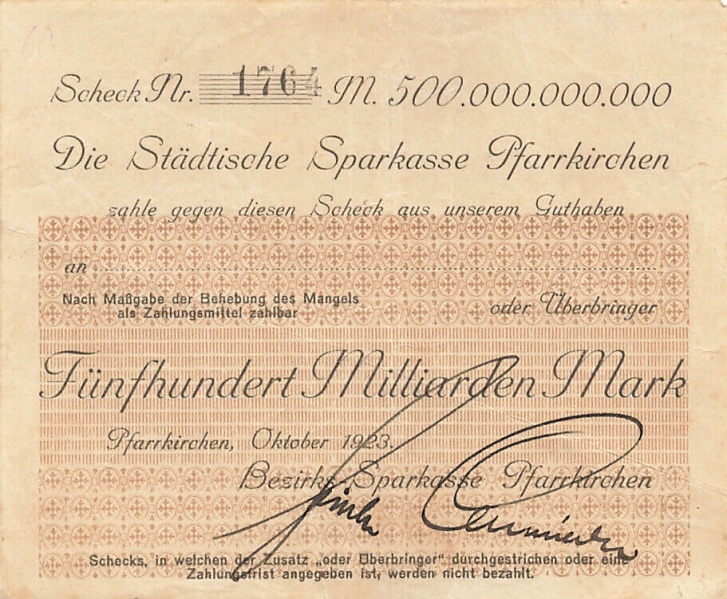 Scheck Nr. 1764 M. 500.000.000.000
Die Städtische Sparkasse Pfarrkirchen
zahle gegen diesen Scheck aus unserem Guthaben
an
Nach Maßgabe der Behebung des Mangels
als Zahlungsmittel zahlbar
oder Überbringer
Fünfhundert Milliarden Mark
Pfarrkirchen, Oktober 1923.
Bezirks-Sparkasse Pfarrkirchen
Schecks, in welchen der Zusatz „oder Überbringer" durchgestrichen oder eine
Zahlungsfrist angegeben ist, werden nicht bezahlt.